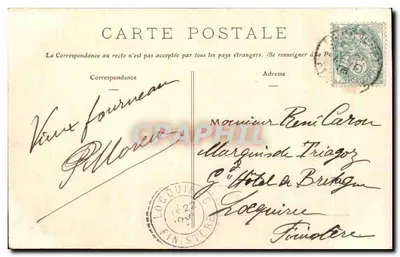 CARTE POSTALE
La Correspondance au recto n'est pas acceptée par tous les pays étrangers. (Se renseigner à la P
Correspondance
Adresse
Vieux fourneau
Monsieur René Caron
Marquis de Triagoz
Gd Hôtel de Bretagne
Locquirec
Finistère
LOCQUIREC
22
FINISTERE
CPAPHIL